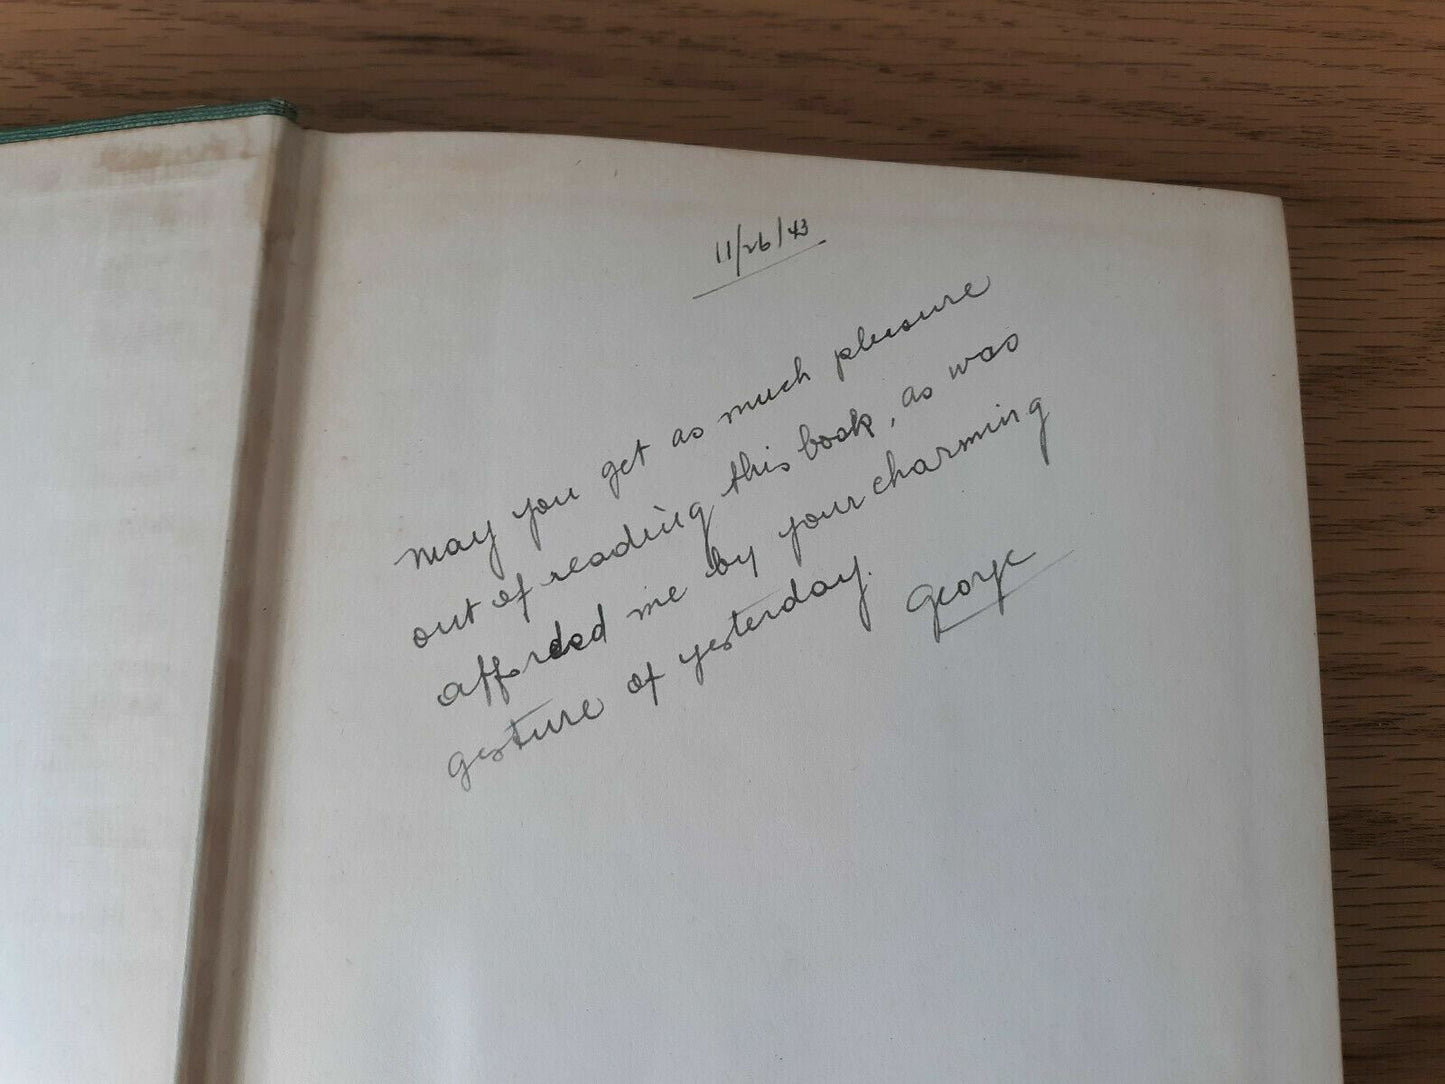 11/26/43
May you get as much pleasure
out of reading this book, as was
afforded me by your charming
gesture of yesterday.
George